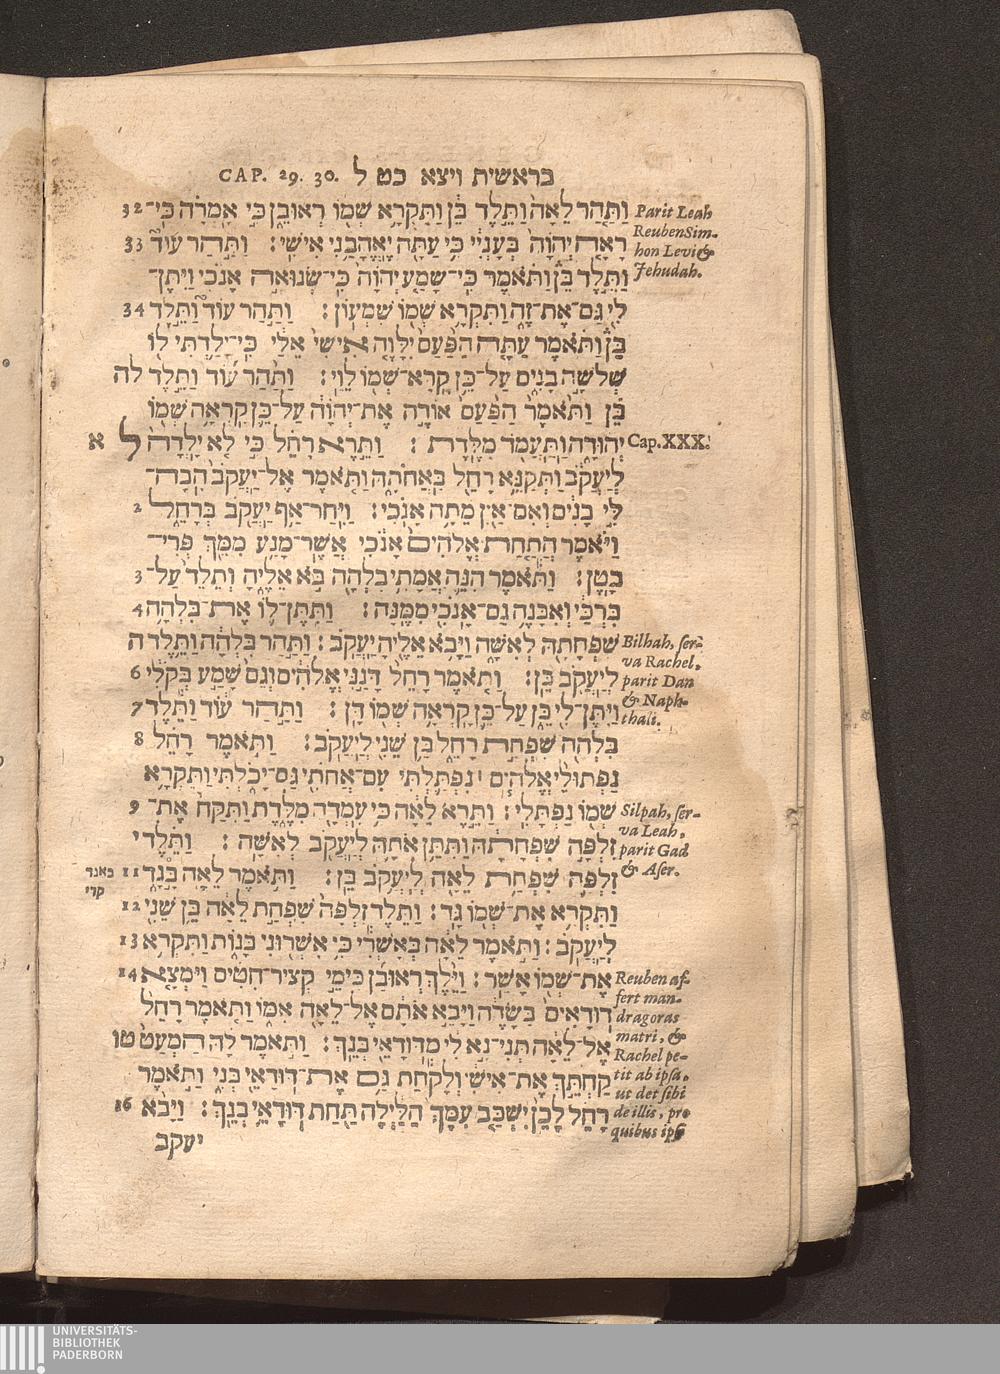 CAP. 29. 30. בראשית ויצא כט ל
וַתַּהַר לֵאָה וַתֵּלֶד בֵּן וַתִּקְרָא שְׁמוֹ רְאוּבֵן כִּי אָמְרָה כִּי־ 32
רָאָה יְהוָה בְּעָנְיִי כִּי עַתָּה יֶאֱהָבַנִי אִישִׁי׃ וַתַּהַר עוֹד 33
וַתֵּלֶד בֵּן וַתֹּאמֶר כִּי־שָׁמַע יְהוָה כִּי־שְׂנוּאָה אָנֹכִי וַיִּתֶּן־
לִי גַּם־אֶת־זֶה וַתִּקְרָא שְׁמוֹ שִׁמְעוֹן׃ וַתַּהַר עוֹד וַתֵּלֶד 34
בֵּן וַתֹּאמֶר עַתָּה הַפַּעַם יִלָּוֶה אִישִׁי אֵלַי כִּי־יָלַדְתִּי לוֹ
שְׁלֹשָׁה בָנִים עַל־כֵּן קָרָא־שְׁמוֹ לֵוִי׃ וַתַּהַר עוֹד וַתֵּלֶד לה
בֵּן וַתֹּאמֶר הַפַּעַם אוֹדֶה אֶת־יְהוָה עַל־כֵּן קָרְאָה שְׁמוֹ
יְהוּדָה וַתַּעֲמֹד מִלֶּדֶת׃ וַתֵּרֶא רָחֵל כִּי לֹא יָלְדָה ל א
לְיַעֲקֹב וַתְּקַנֵּא רָחֵל בַּאֲחֹתָהּ וַתֹּאמֶר אֶל־יַעֲקֹב הָבָה־
לִּי בָנִים וְאִם־אַיִן מֵתָה אָנֹכִי׃ וַיִּחַר־אַף יַעֲקֹב בְּרָחֵל 2
וַיֹּאמֶר הֲתַחַת אֱלֹהִים אָנֹכִי אֲשֶׁר־מָנַע מִמֵּךְ פְּרִי־
בָטֶן׃ וַתֹּאמֶר הִנֵּה אֲמָתִי בִלְהָה בֹּא אֵלֶיהָ וְתֵלֵד עַל־ 3
בִּרְכַּי וְאִבָּנֶה גַם־אָנֹכִי מִמֶּנָּה׃ וַתִּתֶּן־לוֹ אֶת־בִּלְהָה 4
שִׁפְחָתָהּ לְאִשָּׁה וַיָּבֹא אֵלֶיהָ יַעֲקֹב׃ וַתַּהַר בִּלְהָה וַתֵּלֶד ה
לְיַעֲקֹב בֵּן׃ וַתֹּאמֶר רָחֵל דָּנַנִּי אֱלֹהִים וְגַם שָׁמַע בְּקֹלִי 6
וַיִּתֶּן־לִי בֵּן עַל־כֵּן קָרְאָה שְׁמוֹ דָּן׃ וַתַּהַר עוֹד וַתֵּלֶד 7
בִּלְהָה שִׁפְחַת רָחֵל בֵּן שֵׁנִי לְיַעֲקֹב׃ וַתֹּאמֶר רָחֵל 8
נַפְתּוּלֵי אֱלֹהִים ׀ נִפְתַּלְתִּי עִם־אֲחֹתִי גַּם־יָכֹלְתִּי וַתִּקְרָא
שְׁמוֹ נַפְתָּלִי׃ וַתֵּרֶא לֵאָה כִּי עָמְדָה מִלֶּדֶת וַתִּקַּח אֶת־ 9
זִלְפָּה שִׁפְחָתָהּ וַתִּתֵּן אֹתָהּ לְיַעֲקֹב לְאִשָּׁה׃ וַתֵּלֶד י
זִלְפָּה שִׁפְחַת לֵאָה לְיַעֲקֹב בֵּן׃ וַתֹּאמֶר לֵאָה בָּגָד 11
וַתִּקְרָא אֶת־שְׁמוֹ גָּד׃ וַתֵּלֶד זִלְפָּה שִׁפְחַת לֵאָה בֵּן שֵׁנִי 12
לְיַעֲקֹב׃ וַתֹּאמֶר לֵאָה בְּאָשְׁרִי כִּי אִשְּׁרוּנִי בָּנוֹת וַתִּקְרָא 13
אֶת־שְׁמוֹ אָשֵׁר׃ וַיֵּלֶךְ רְאוּבֵן בִּימֵי קְצִיר־חִטִּים וַיִּמְצָא 14
דוּדָאִים בַּשָּׂדֶה וַיָּבֵא אֹתָם אֶל־לֵאָה אִמּוֹ וַתֹּאמֶר רָחֵל
אֶל־לֵאָה תְּנִי־נָא לִי מִדּוּדָאֵי בְּנֵךְ׃ וַתֹּאמֶר לָהּ הַמְעַט טו
קַחְתֵּךְ אֶת־אִישִׁי וְלָקַחַת גַּם אֶת־דּוּדָאֵי בְּנִי וַתֹּאמֶר
רָחֵל לָכֵן יִשְׁכַּב עִמָּךְ הַלַּיְלָה תַּחַת דּוּדָאֵי בְנֵךְ׃ וַיָּבֹא 16
יעקב
Parit Leah
Reuben Sim-
hon Levi &
Jehudah.
Cap. XXX.
Bilhah, ser-
va Rachel,
parit Dan
& Naph-
thali.
Silpah, ser-
va Leah,
parit Gad
& Aser.
Reuben af-
fert man-
dragoras
matri, &
Rachel pe-
tit ab ipsa,
ut det sibi
de illis, pro
quibus ips
באגד
קרי
UNIVERSITÄTS-
BIBLIOTHEK
PADERBORN